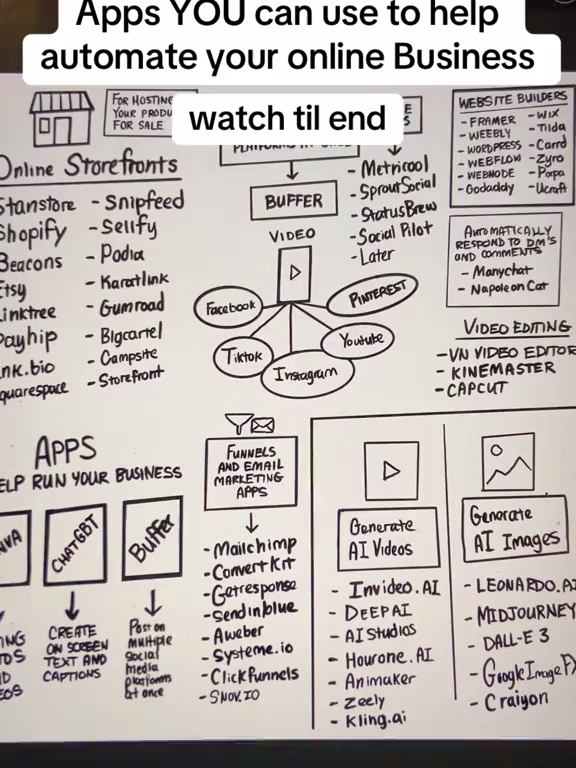 Apps YOU can use to help
automate your online Business
watch til end
FOR HOSTING
YOUR PRODU
FOR SALE
Online Storefronts
Stanstore
Shopify
Beacons
Etsy
Linktree
Payhip
nk.bio
quarespace
- Snipfeed
- Sellfy
- Podia
- Karatlink
- Gumroad
- Bigcartel
- Campsite
- Storefront
BUFFER
VIDEO
Facebook
Tiktok
Instagram
Youtube
PINTEREST
- Metricool
- SproutSocial
- StatusBrew
- Social Pilot
- Later
WEBSITE BUILDERS
- FRAMER
- WEEBLY
- WORDPRESS
- WEBFLOW
- WEBNODE
- Godaddy
- Wix
- Tilda
- Carrd
- Zyro
- Pixpa
- Ucraft
AUTOMATICALLY
RESPOND TO DM'S
AND COMMENTS
- Manychat
- NapoleonCat
VIDEO EDITING
- VN VIDEO EDITOR
- KINEMASTER
- CAPCUT
APPS
ELP RUN YOUR BUSINESS
NVA
CHATGBT
Buffer
CREATE
ON SCREEN
TEXT AND
CAPTIONS
Post on
multiple
Social
media
platforms
at once
FUNNELS
AND EMAIL
MARKETING
APPS
- Mailchimp
- ConvertKit
- Getresponse
- Sendinblue
- Aweber
- Systeme.io
- ClickFunnels
- SNOV.IO
Generate
AI Videos
- Invideo.AI
- DEEPAI
- AIStudios
- Hourone.AI
- Animaker
- Zeely
- Kling.ai
Generate
AI Images
- LEONARDO.AI
- MIDJOURNEY
- DALL-E 3
- GoogleImageFX
- Craiyon